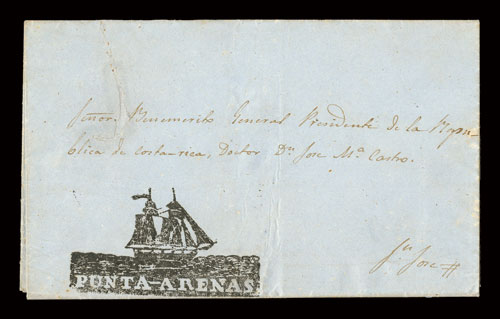 Señor. Benemerito General Presidente de la Repu-
blica de Costa-rica, Doctor Dn. Jose Ma. Castro.
Sn. Jose #
PUNTA-ARENAS